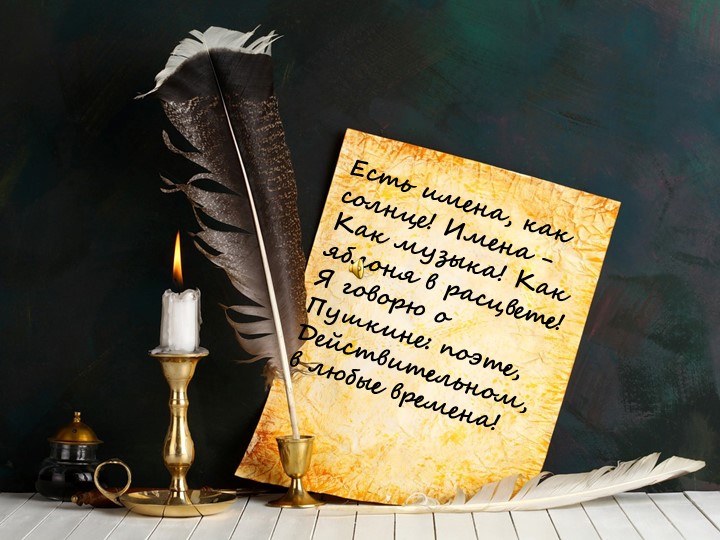 Есть имена, как
солнце! Имена –
Как музыка! Как
яблоня в расцвете!
Я говорю о
Пушкине: поэте,
Действительном,
в любые времена!